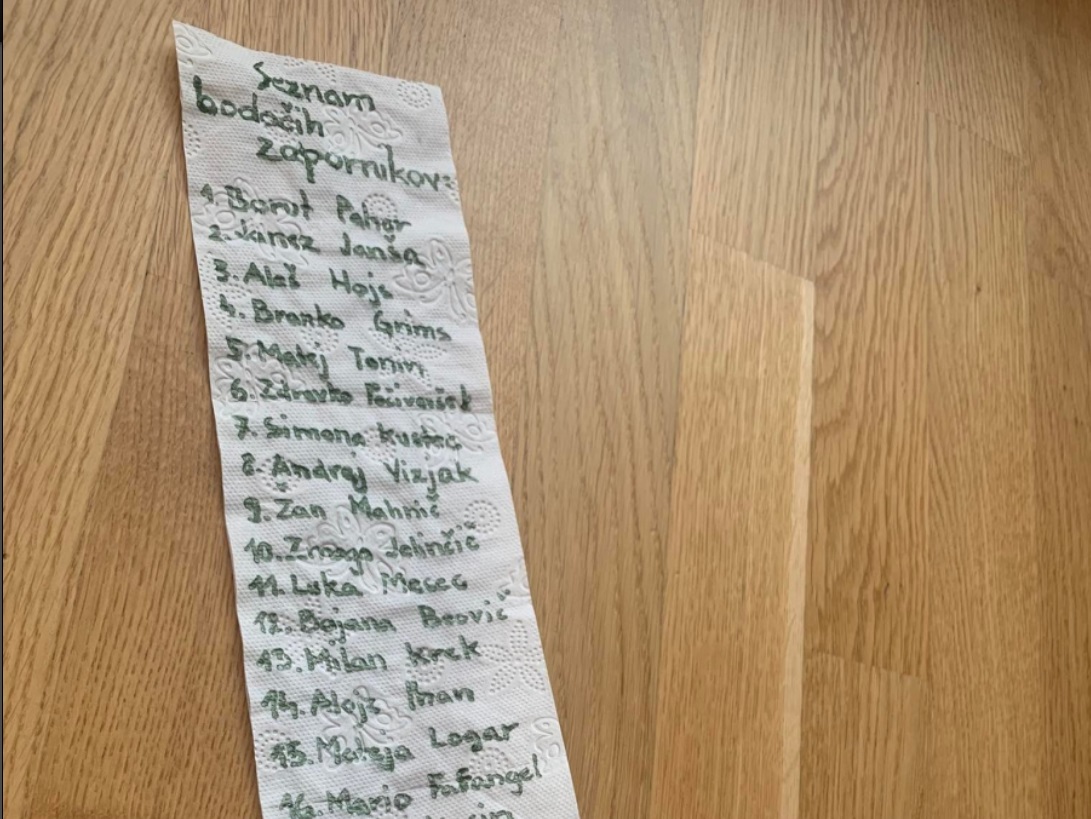 Seznam
bodočih
zapornikov:
1. Borut Pahor
2. Janez Janša
3. Aleš Hojs
4. Branko Grims
5. Matej Tonin
6. Zdravko Počivalšek
7. Simona Kustec
8. Andrej Vizjak
9. Žan Mahnič
10. Zmago Jelinčič
11. Luka Mesec
12. Bojana Beović
13. Milan Krek
14. Alojz Ihan
15. Mateja Logar
16. Mario Fafangel